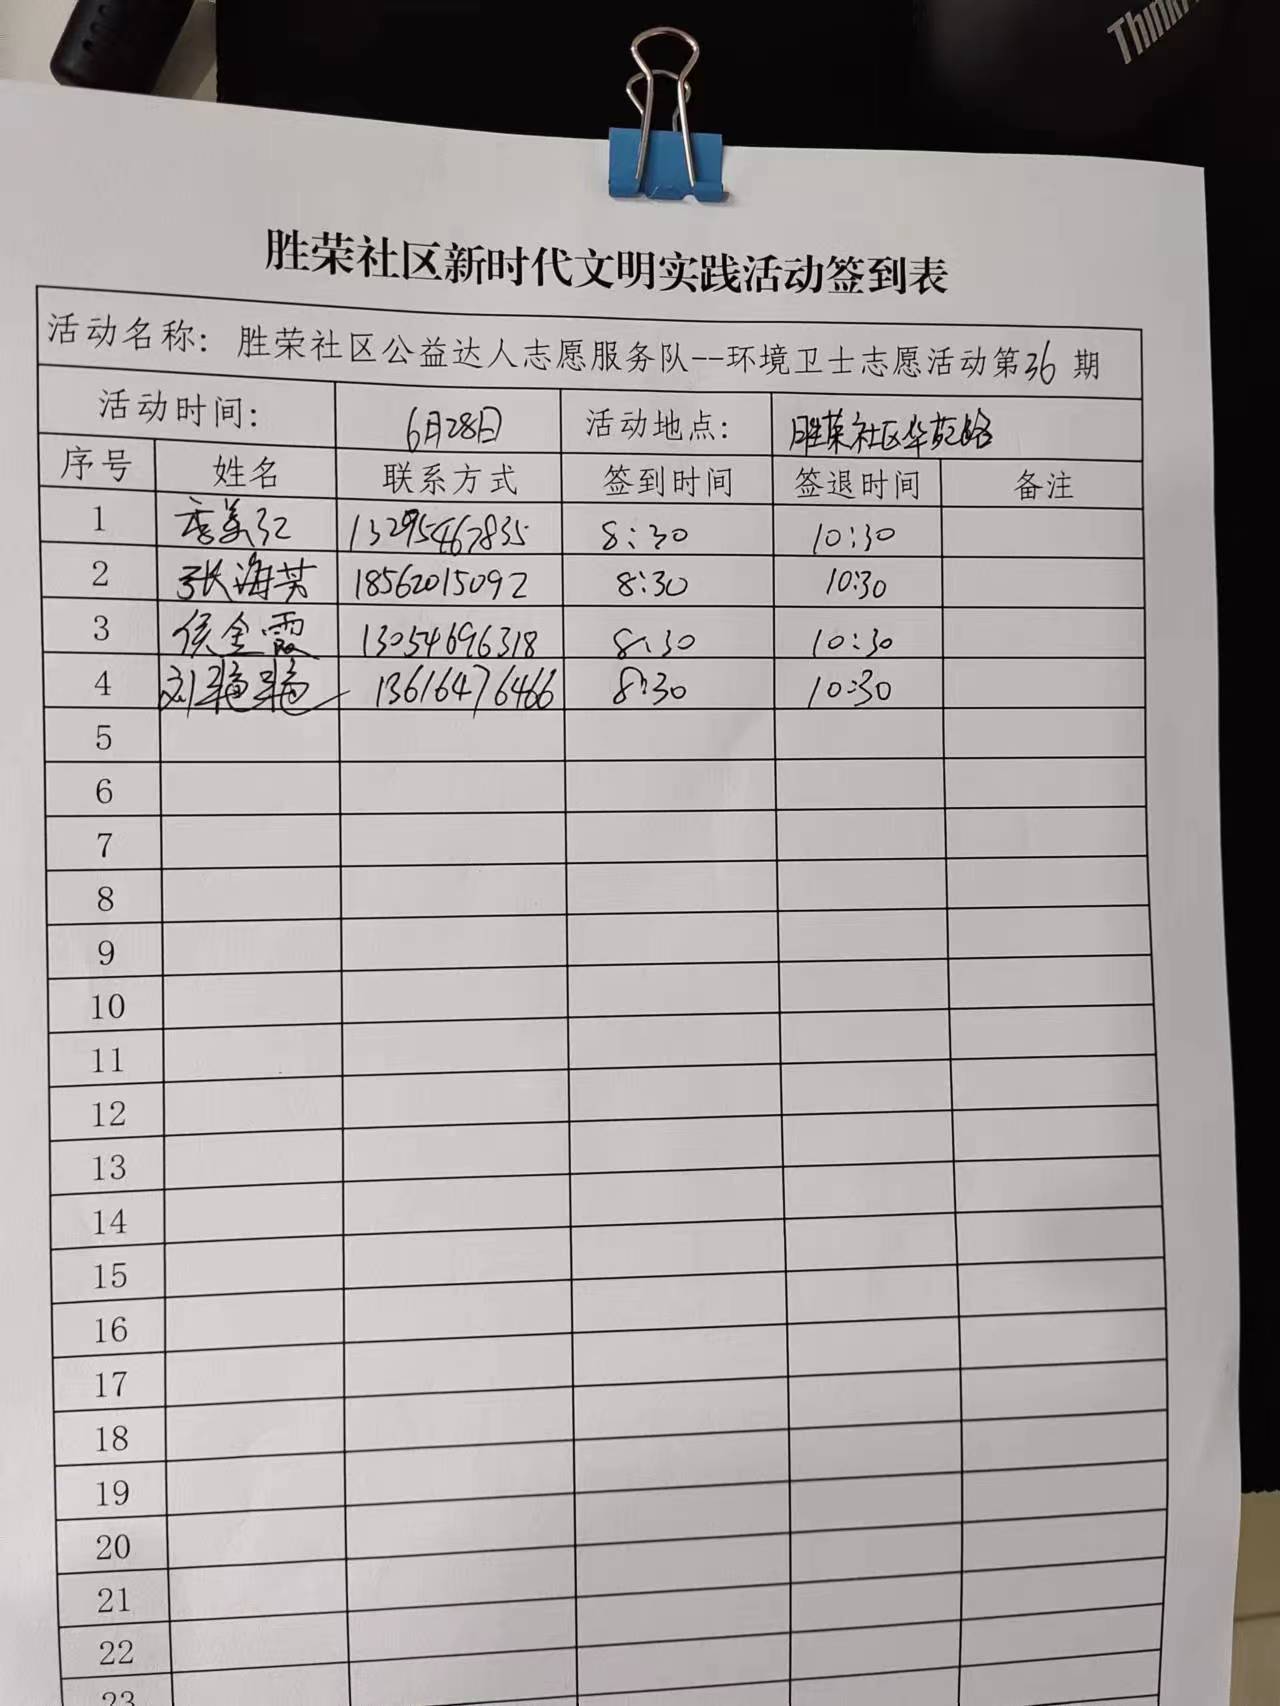 胜荣社区新时代文明实践活动签到表
活动名称：胜荣社区公益达人志愿服务队--环境卫士志愿活动第36期
活动时间： 6月28日 活动地点： 胜荣社区华苑路
序号 姓名 联系方式 签到时间 签退时间 备注
1 李美红 13295467835 8:30 10:30
2 张海英 18562015092 8:30 10:30
3 侯金霞 13054696318 8:30 10:30
4 刘艳艳 13616476466 8:30 10:30
5
6
7
8
9
10
11
12
13
14
15
16
17
18
19
20
21
22
23